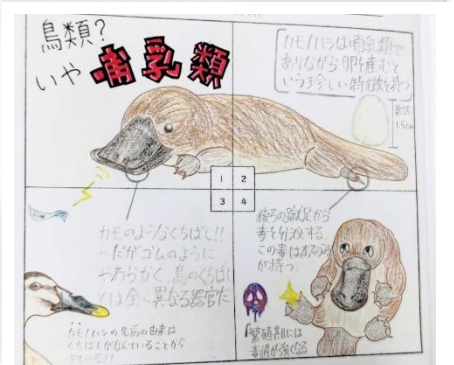 鳥類?
いや哺乳類
カモノハシは哺乳類で
ありながら卵を産むと
いう珍しい特徴を持つ
1.5cm
1 2
3 4
カモのようなくちばし!!
…だがゴムのように
やわらかく、鳥のくちばし
とは全く異なる器官だ
カモノハシの名前の由来は
くちばしが似ていることから
きている!!
後ろの蹴爪から
毒を分泌する
この毒はオスのみ
が持つ
繁殖期には
毒価が強くなる